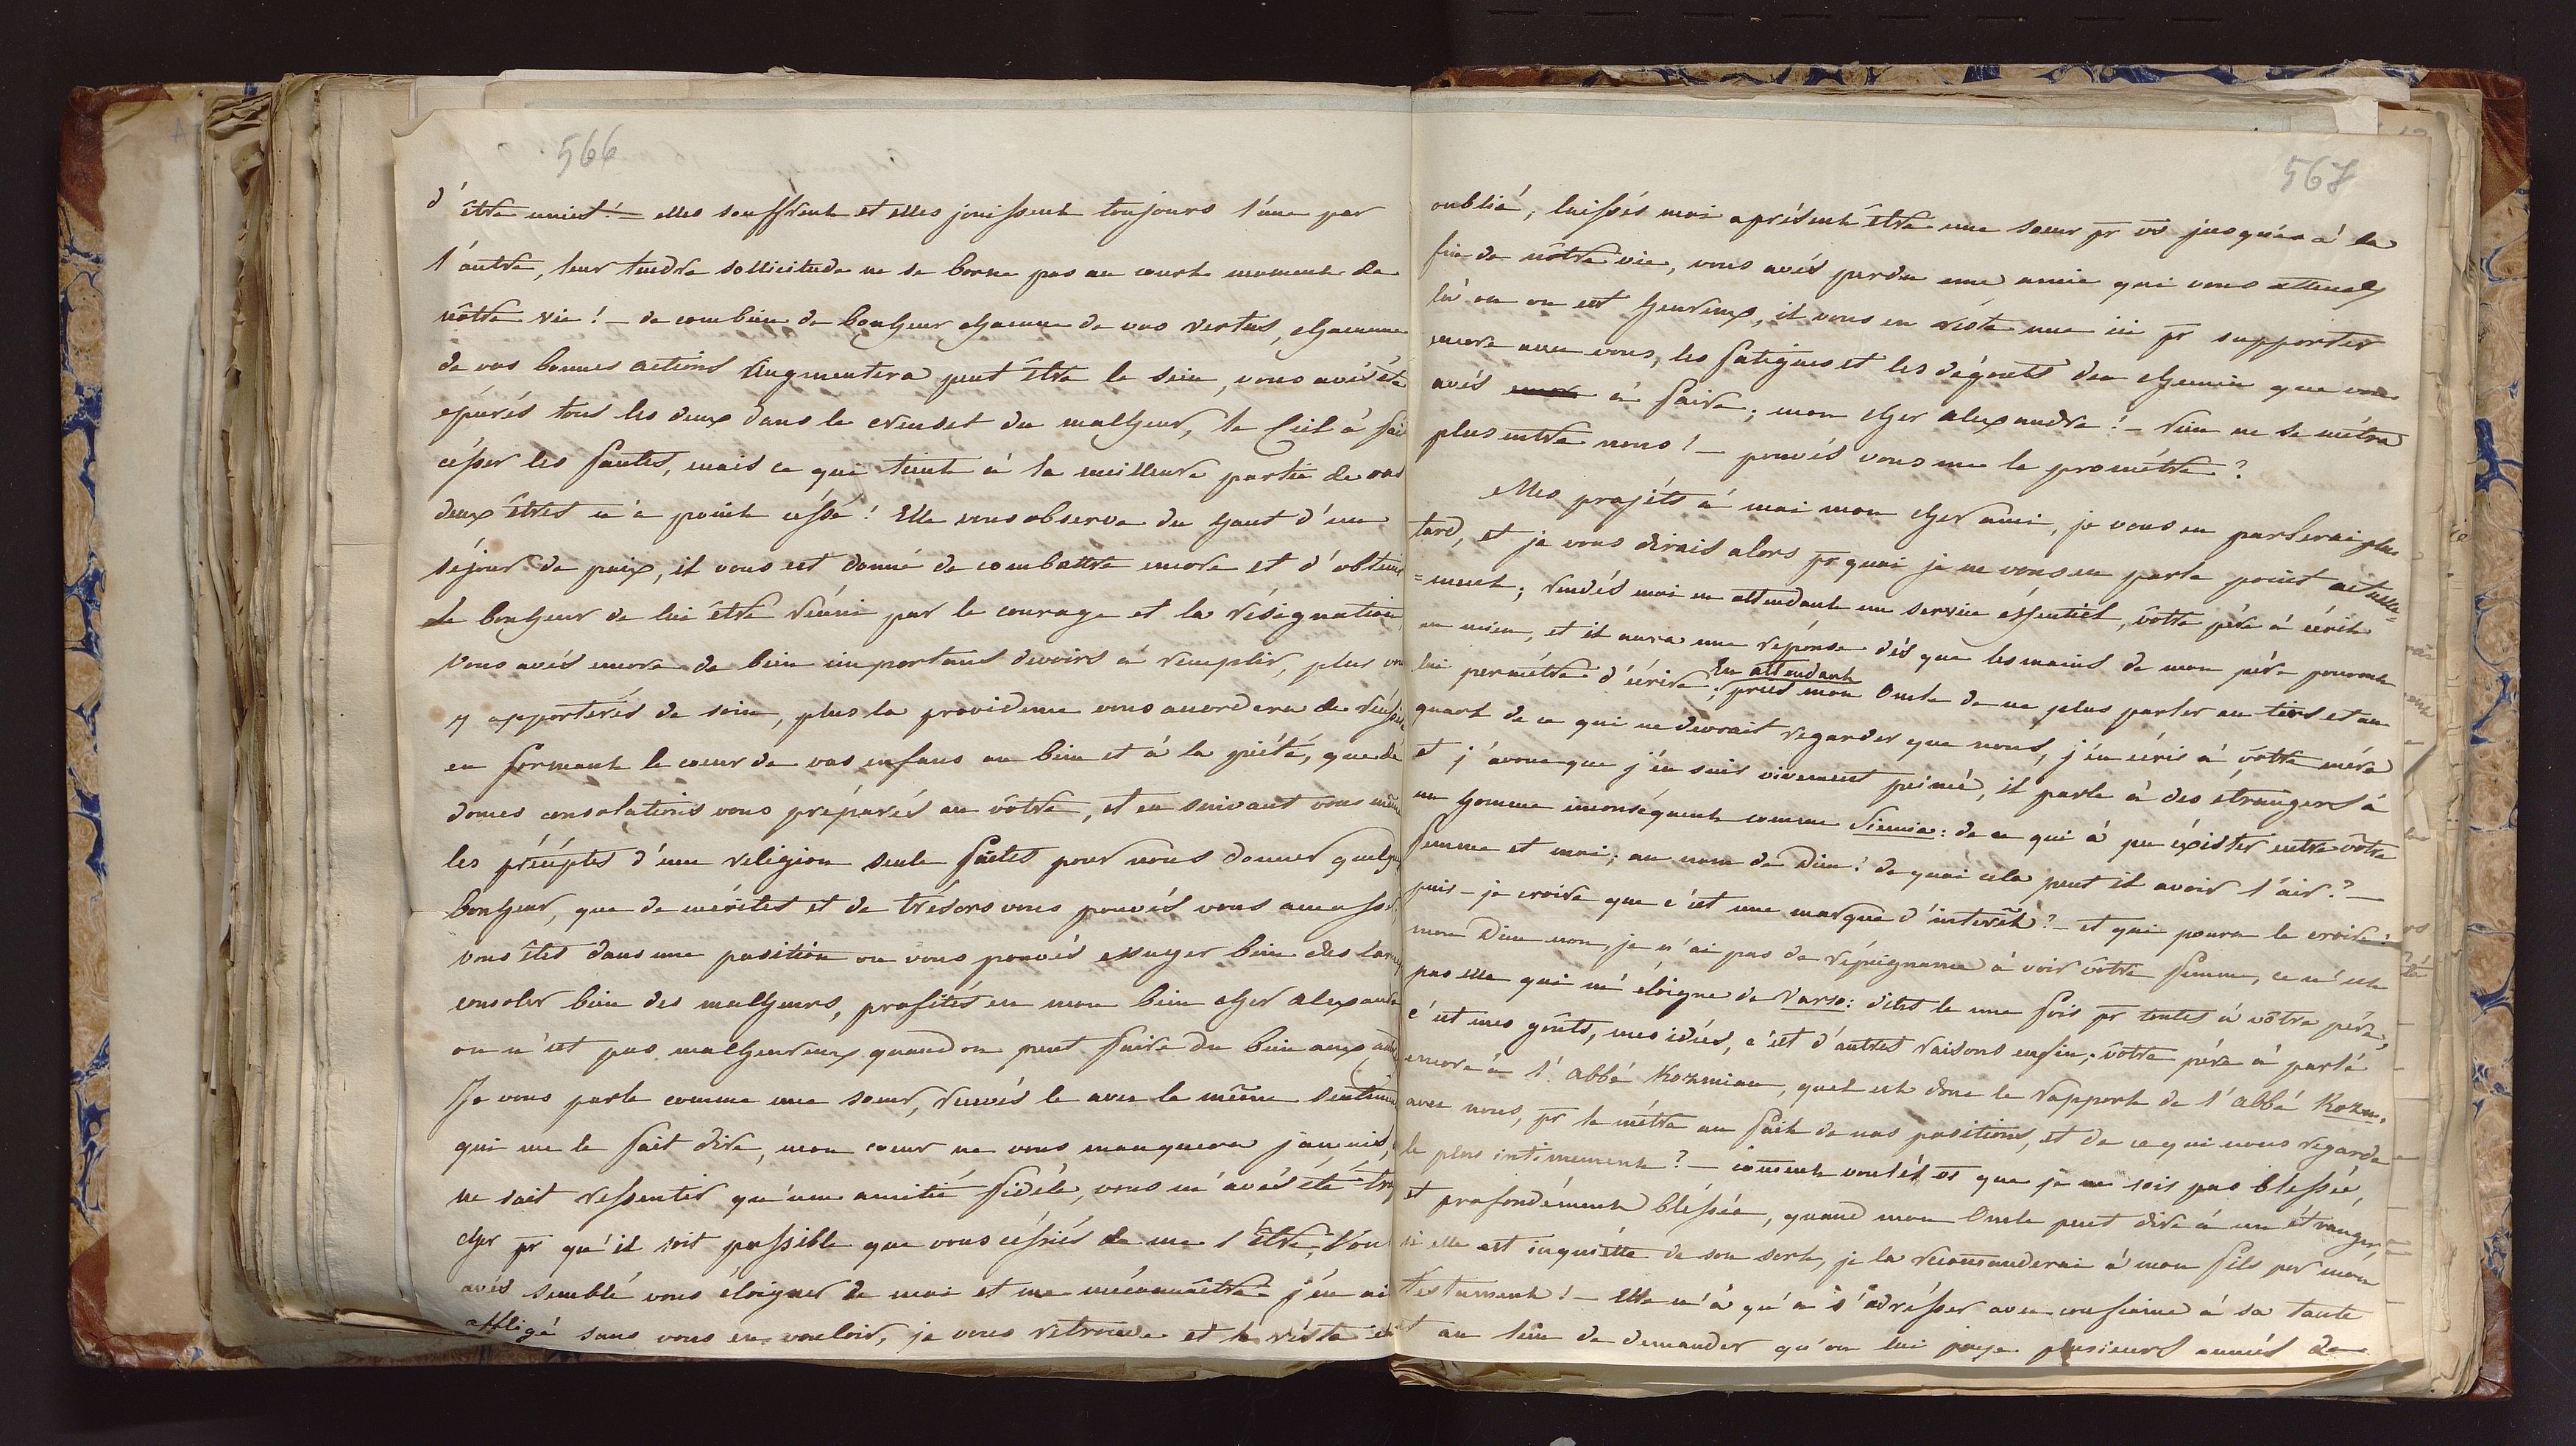 566
d'être unies! — elles souffrent et elles jouissent toujours l'une par
l'autre, leur tendre sollicitude ne se borne pas au court moment de
nôtre vie! — de combien de bonheur chacune de vos vertus, chacune
de vos bonnes actions augmentera peut être le sien, vous avés été
épurés tous les deux dans le creuset du malheur, le Ciel à fait
césser les fautes, mais ce qui tient à la meilleure partie de vos
deux êtres n'à point céssé! Elle vous observe du haut d'un
séjour de paix, il vous est donné de combattre encore et d'obtenir
le bonheur de lui être réuni par le courage et la résignation,
vous avés encore de bien importans devoirs à remplir, plus vous
y apporterés de soin, plus la providence vous accordera de réussir
en formant le coeur de vos enfans au bien et à la piété, que de
douces consolations vous préparés au vôtre, et en suivant vous même
les précéptes d'une religion seule faites pour nous donner quelque
bonheur, que de mérites et de trésors vous pouvés vous amasser;
vous êtes dans une position ou vous pouvés essuyer bien des larmes
consoler bien des malheurs, profités en mon bien cher alexandre
on n'est pas malheureux quand on peut faire du bien aux autres
Je vous parle comme une soeur, recevés le avec le même sentiment
qui me le fait dire, mon coeur ne vous manquera jamais,
ne sait ressentir qu'une amitié fidèle, vous m'avés été trop
cher pr qu'il soit possible que vous céssiés de me l'être, Vous
avés semblé vous éloigner de moi et me méconnaître j'en ai
affligé sans vous en vouloir, je vous retrouve et le réste est
567
oublié, laissés moi aprésent être une soeur pr vs jusques à la
fin de nôtre vie, vous avés perdu une amie qui vous attend
là ou on est heureux, il vous en réste une ici pr supporter
encore avec vous, les fatigues et les dégouts du chemin que vous
avés à faire; mon cher alexandre! — rien ne se métra
plus entre nous! — pouvés vous me le prométtre?
Mes projéts à moi mon cher ami, je vous en parlerai plus
tard, et je vous dirais alors pr quoi je ne vous en parle point actuelle=
=ment; rendés moi en attendant un service éssentiel, vôtre père à écrit
au mien, et il aura une réponse dès que les mains de mon père pouront
lui permétre d'écrire; En attendant priés mon Oncle de ne plus parler au tiers et au
quart de ce qui ne devrait regarder que nous, j'en écris à vôtre mère
et j'avoue que j'en suis vivement peinée, il parle à des étrangers à
un homme inconséquent comme Siemia: de ce qui à pu éxister entre vôtre
femme et moi; au nom de Dieu! de quoi cela peut il avoir l'air? —
puis-je croire que c'est une marque d'interêt? — et qui poura le croire!
mon Dieu non, je n'ai pas de répugnance à voir vôtre femme, ce n'est
pas elle qui m'éloigne de Varso: dites le une fois pr toutes à vôtre père,
c'est mes goûts, mes idées, c'est d'autres raisons enfin; vôtre père à parlé
encore à l'abbé Kozmian, quel est donc le rapport de l'abbé Kozm:
avec nous, pr le métre au fait de nos positions, et de ce qui nous regarde
le plus intimement? — coment voulés vs que je ne sois pas bléssée,
et profondément bléssée, quand mon Oncle peut dire à un étranger,
si elle est inquiète de son sort, je la recomanderai à mon fils par mon
testament! — Elle n'à qu'à s'adrésser avec confiance à sa tante
et au lieu de demander qu'on lui paye plusieurs années de